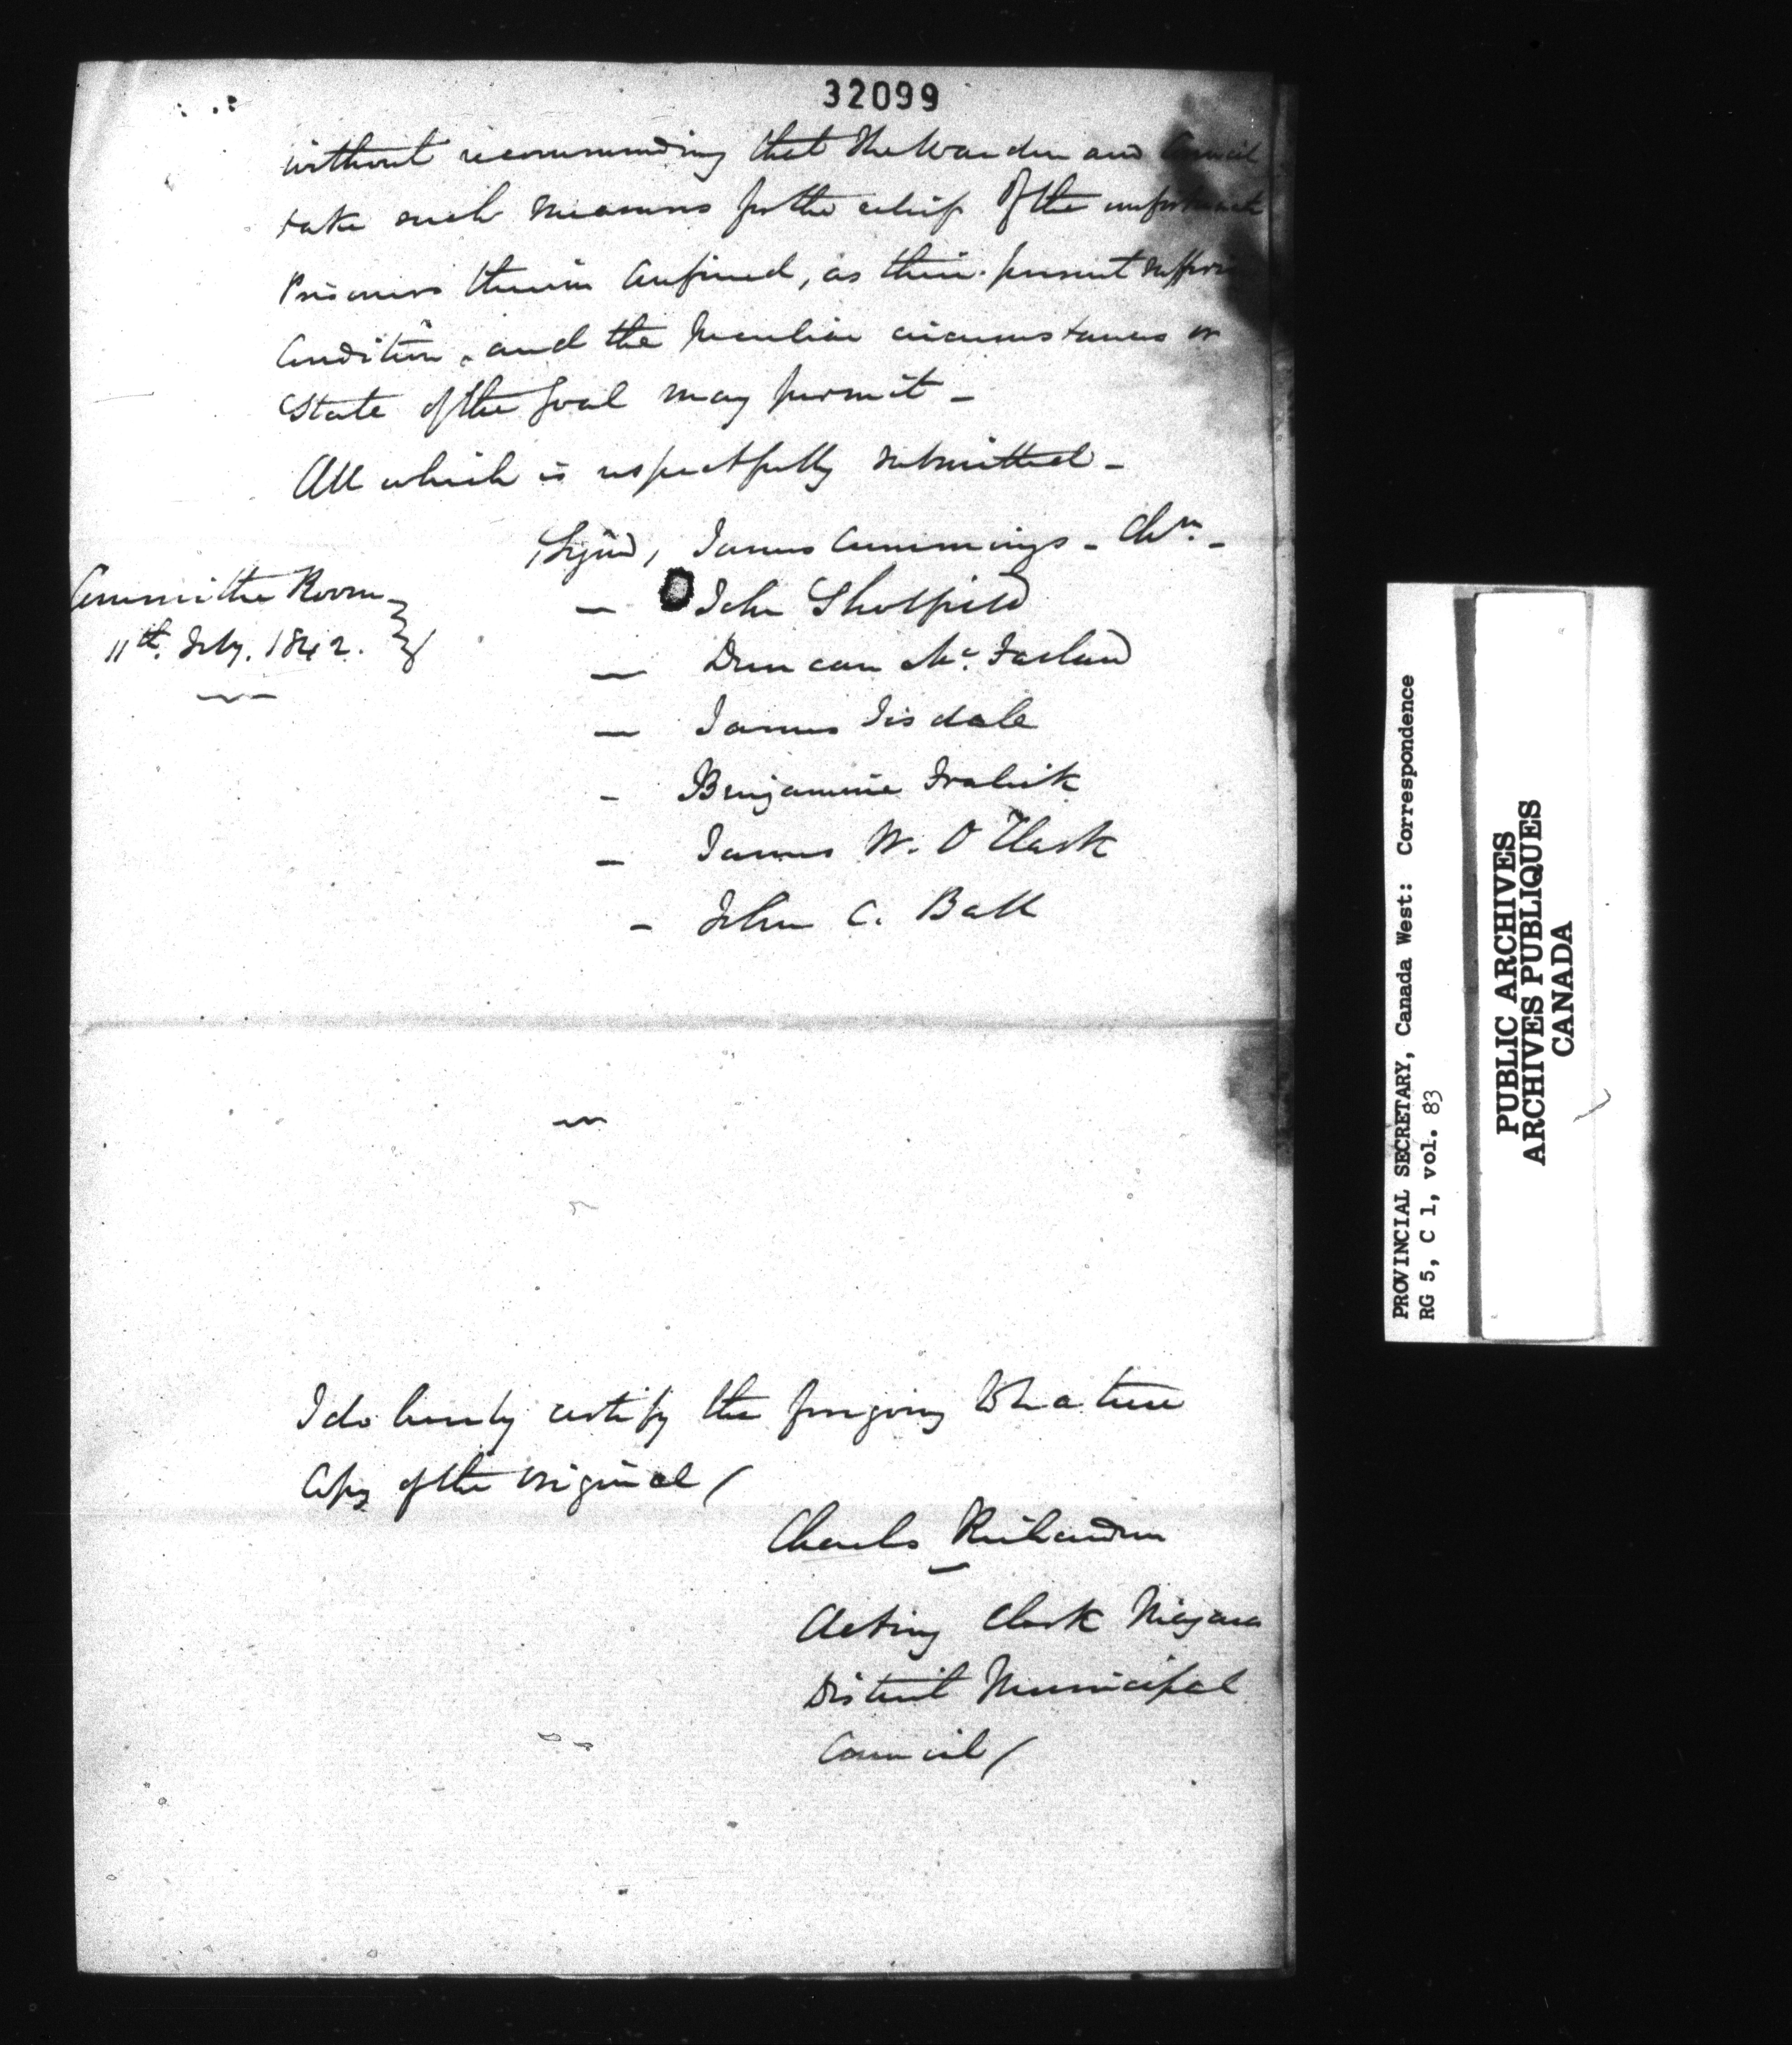 32099
without recommending that the Warden and Council
take such measures for the relief of the unfortunate
Prisoners therein Confined, as their present suffering
Condition, and the peculiar circumstances or
State of the Goal may permit -
All which is respectfully submitted -
(Signed) James Cummings - Chn. -
Committee Room
11th. July. 1842.
- John Sholfield
- Duncan Mc. Farland
- James Tisdale
- Benjamine Fralick
- James W. O Clark
- John C. Ball
I do hereby certify the foregoing to be a true
Copy of the original /
Charles Richardson
Acting Clerk Niagara
District Municipal
Council /
PROVINCIAL SECRETARY, Canada West: Correspondence
RG 5, C 1, vol. 83
PUBLIC ARCHIVES
ARCHIVES PUBLIQUES
CANADA